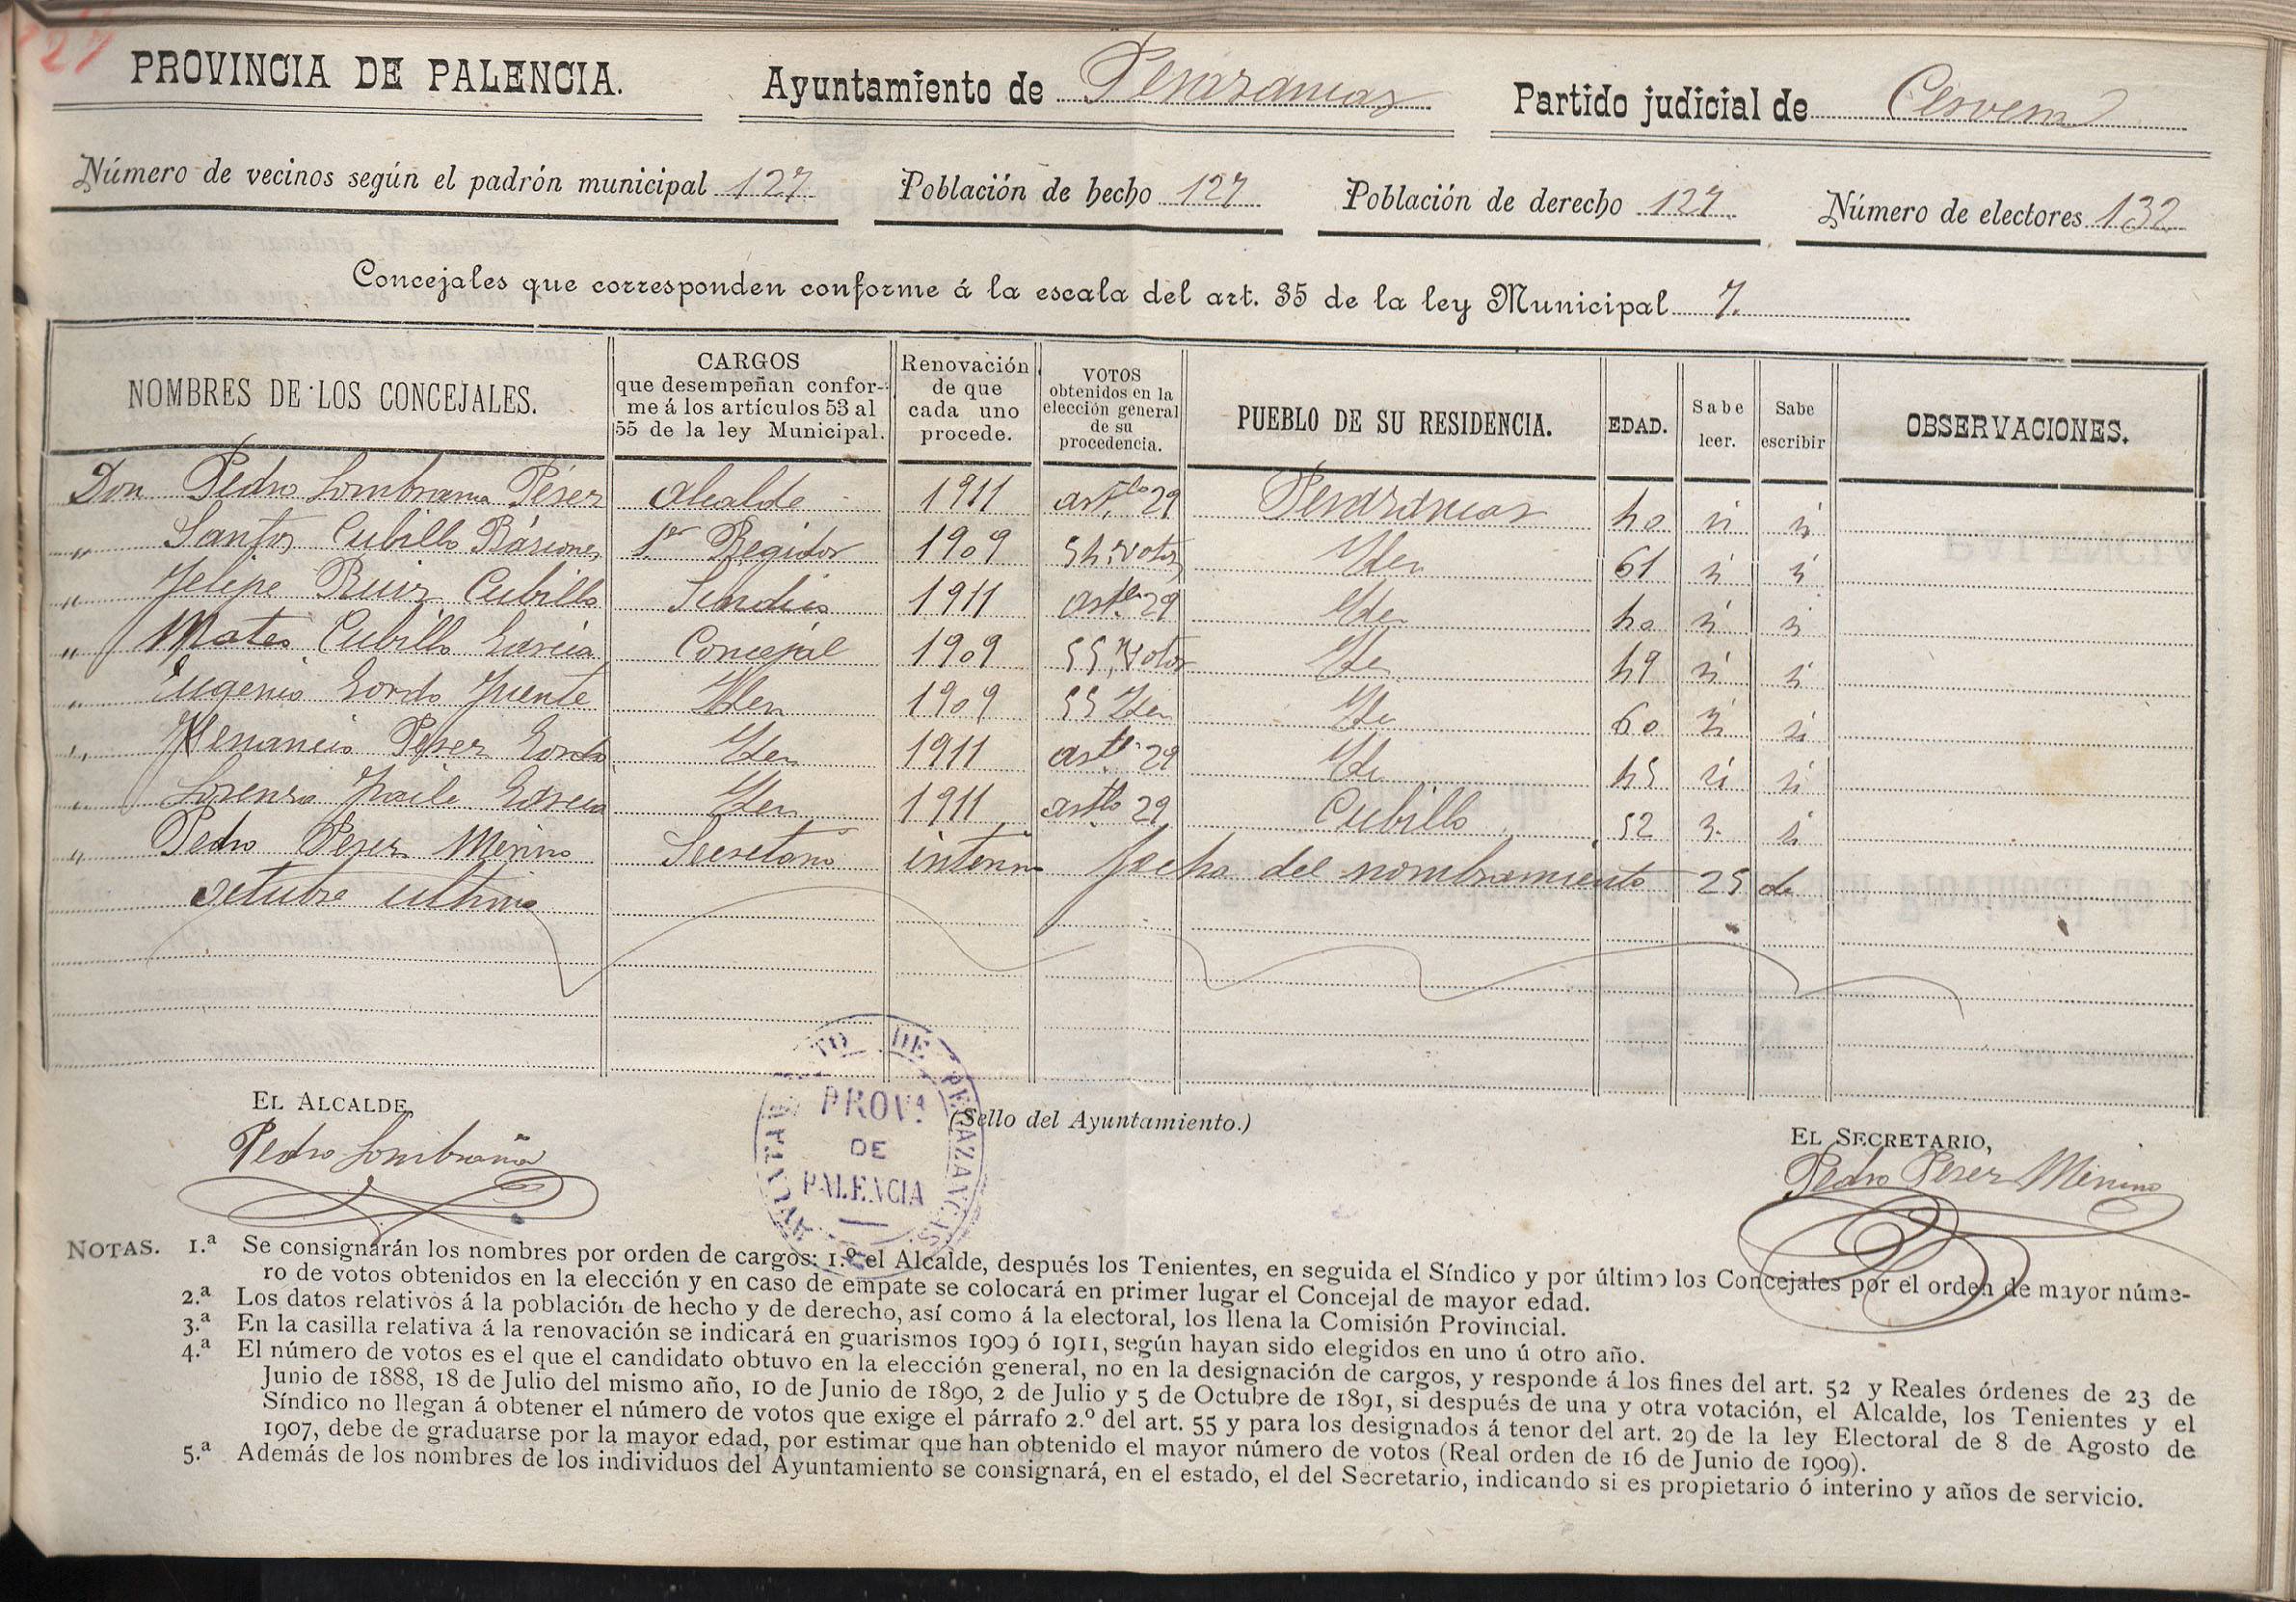 127
PROVINCIA DE PALENCIA. Ayuntamiento de Perazancas Partido judicial de Cervera
Número de vecinos según el padrón municipal 127 Población de hecho 127 Población de derecho 127. Número de electores 132
Concejales que corresponden conforme á la escala del art. 35 de la ley Municipal 7.
NOMBRES DE LOS CONCEJALES. CARGOS que desempeñan conforme á los artículos 53 al 55 de la ley Municipal. Renovación de que cada uno procede. VOTOS obtenidos en la elección general de su procedencia. PUEBLO DE SU RESIDENCIA. EDAD. Sabe leer. Sabe escribir OBSERVACIONES.
Don Pedro Lombraña Pérez Alcalde 1911 artlo 29 Perazancas 40 si si
" Santos Cubillo Bárcenes 1er Regidor 1909 54 votos Iden 61 si si
" Felipe Ruiz Cubillo Sindico 1911 artlo 29 Iden 40 si si
" Mateo Cubillo Garcia Concejal 1909 55 votos Iden 49 si si
" Eugenio Gordo Fuente Iden 1909 55 Iden Iden 60 si si
" Venancio Perez Gordo Iden 1911 artlo 29 Iden 45 si si
" Lorenzo Fraile Garcia Iden 1911 artlo 29 Cubillo 52 si si
" Pedro Perez Merino Secretario interino fecha del nombramiento 25 de
octubre ultimo
EL ALCALDE,
Pedro Lombraña
AYUNTAMIENTO DE PERAZANCAS
PROVA
DE
PALENCIA
(Sello del Ayuntamiento.)
EL SECRETARIO,
Pedro Perez Merino
NOTAS. 1.ª Se consignarán los nombres por orden de cargos: 1.º el Alcalde, después los Tenientes, en seguida el Síndico y por último los Concejales por el orden de mayor núme-
ro de votos obtenidos en la elección y en caso de empate se colocará en primer lugar el Concejal de mayor edad.
2.ª Los datos relativos á la población de hecho y de derecho, así como á la electoral, los llena la Comisión Provincial.
3.ª En la casilla relativa á la renovación se indicará en guarismos 1909 ó 1911, según hayan sido elegidos en uno ú otro año.
4.ª El número de votos es el que el candidato obtuvo en la elección general, no en la designación de cargos, y responde á los fines del art. 52 y Reales órdenes de 23 de
Junio de 1888, 18 de Julio del mismo año, 10 de Junio de 1890, 2 de Julio y 5 de Octubre de 1891, si después de una y otra votación, el Alcalde, los Tenientes y el
Síndico no llegan á obtener el número de votos que exige el párrafo 2.º del art. 55 y para los designados á tenor del art. 29 de la ley Electoral de 8 de Agosto de
1907, debe de graduarse por la mayor edad, por estimar que han obtenido el mayor número de votos (Real orden de 16 de Junio de 1909).
5.ª Además de los nombres de los individuos del Ayuntamiento se consignará, en el estado, el del Secretario, indicando si es propietario ó interino y años de servicio.